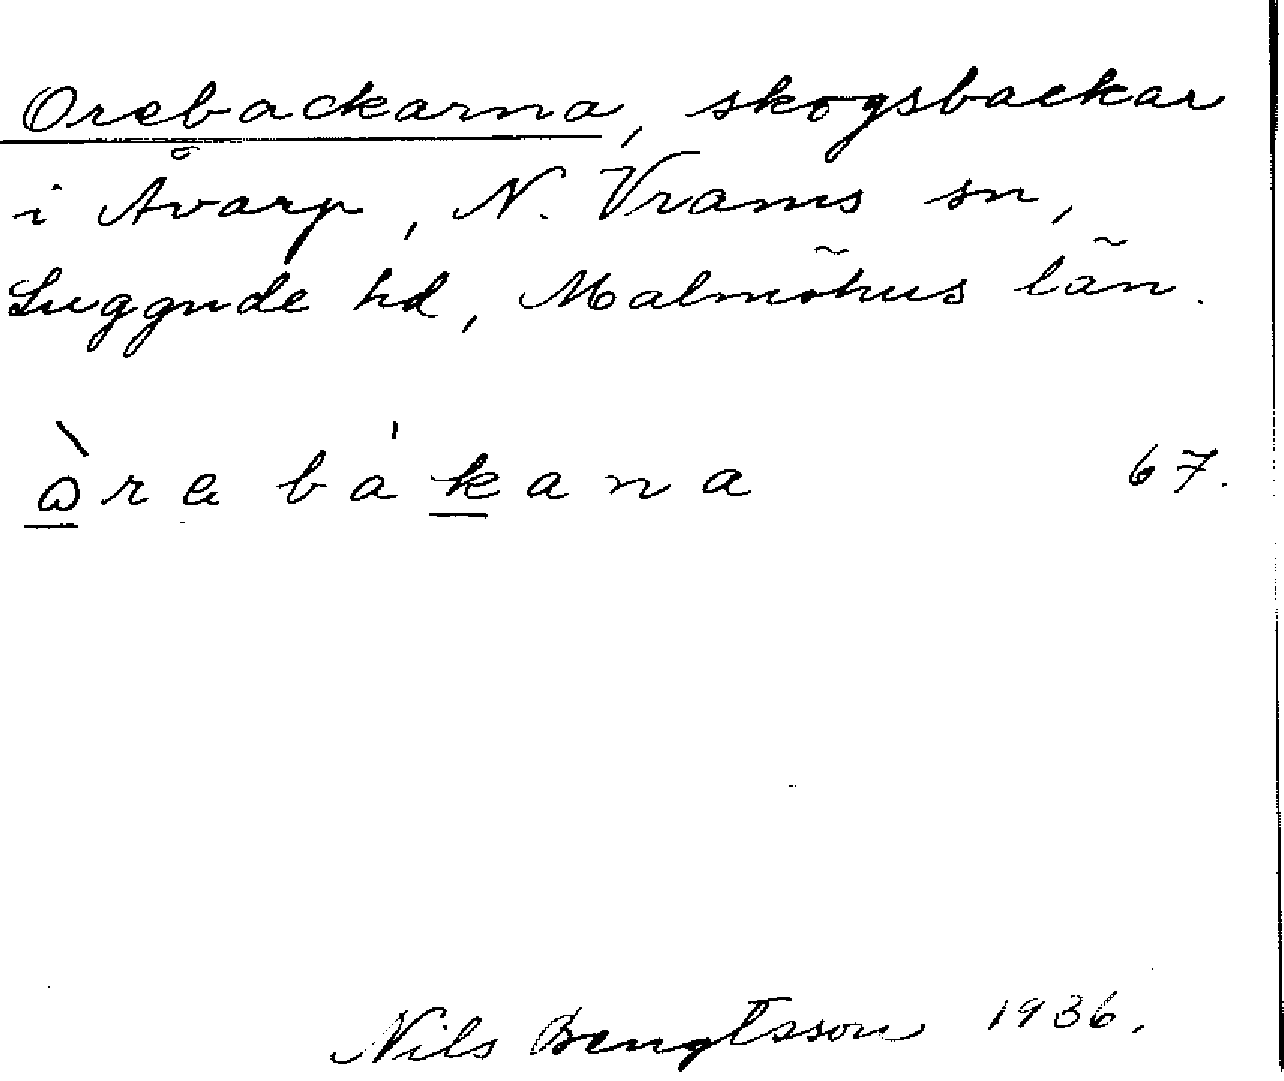 Orebackarna, skogsbackar
i Åvarp, N. Vrams sn,
Luggude hd, Malmöhus län.
òrebákana 67.
Nils Bengtsson 1936.